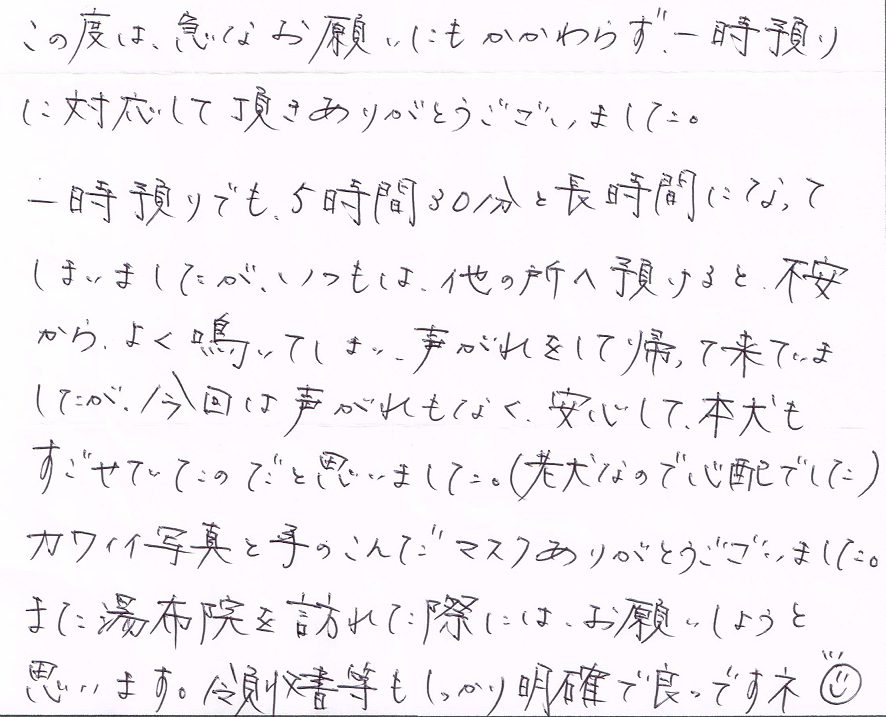 この度は、急なお願いにもかかわらず、一時預り
に対応して頂きありがとうございました。
一時預りでも、5時間30分と長時間になって
しまいましたが、いつもは、他の所へ預けると、不安
から、よく鳴いてしまい、声がれをして帰って来ていま
したが、今回は声がれもなく、安心して、本犬も
すごせていたのだと思いました。(老犬なので心配でした)
カワイイ写真と手のこんだマスクありがとうございました。
また湯布院を訪れた際には、お願いしようと
思います。会則文書等もしっかり明確で良いですネ